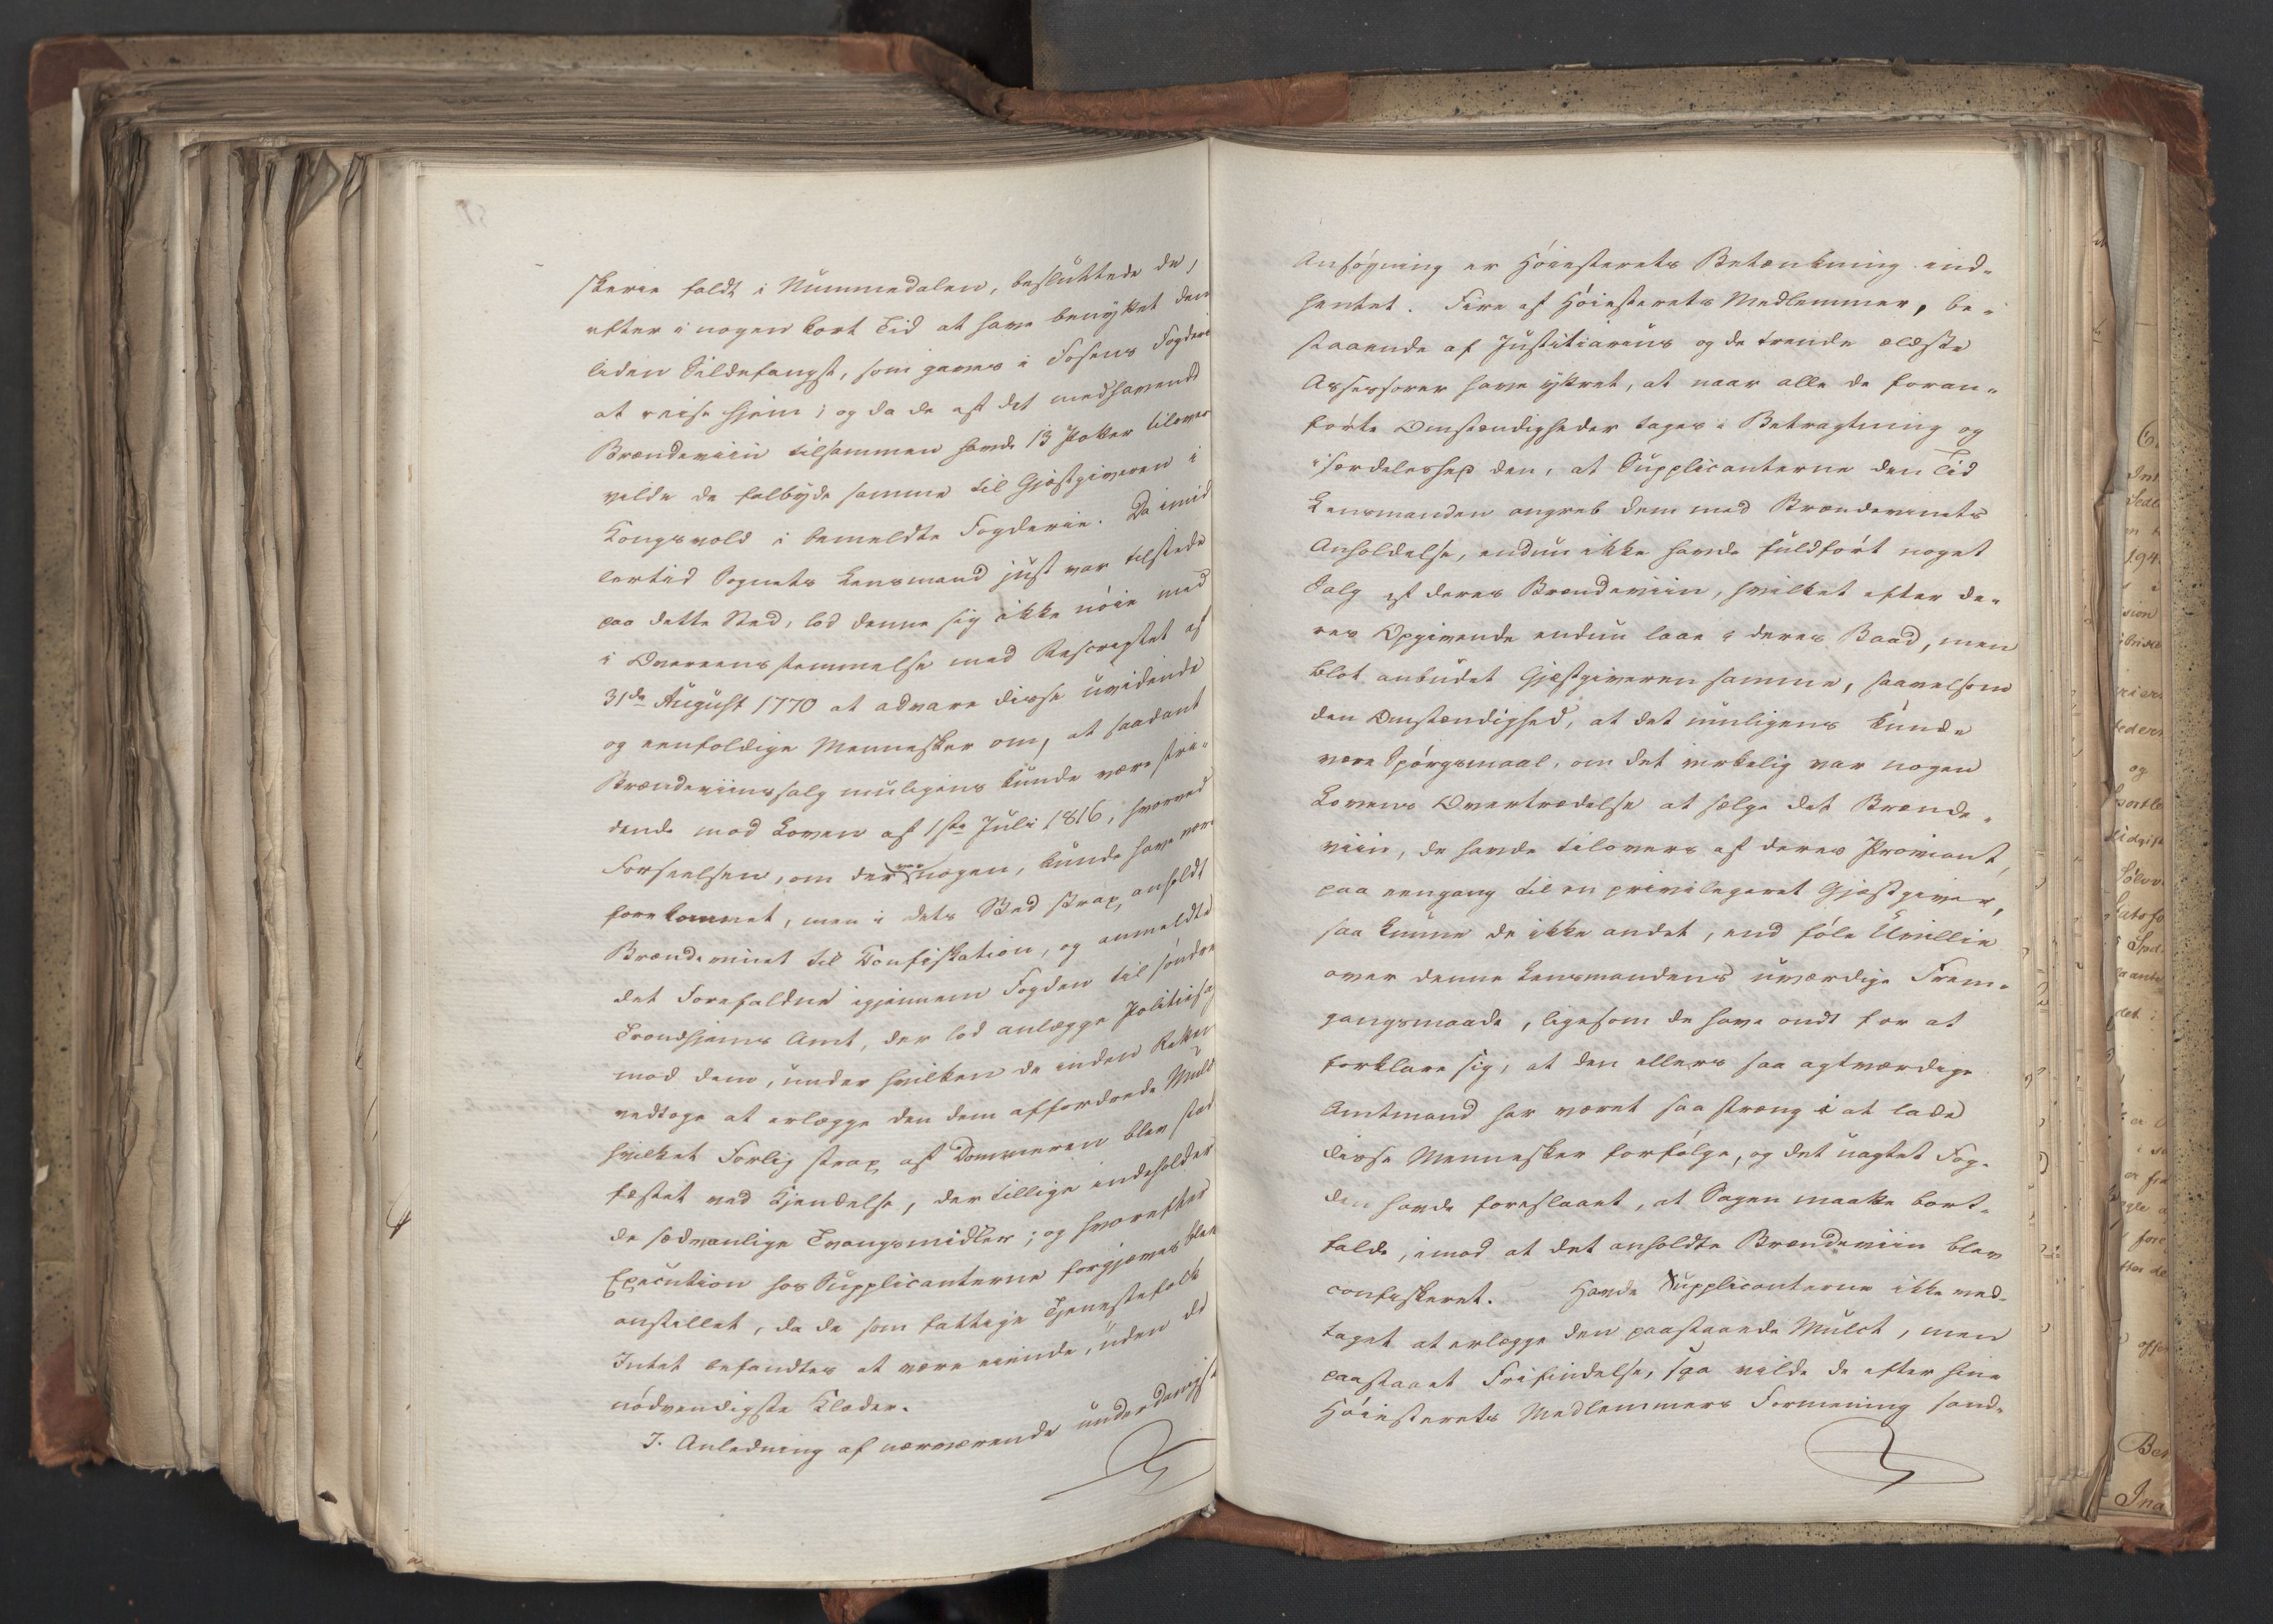 skerie faldt i Nummedalen, besluttede de,
efter i nogen kort Tid at have benyttet den
liden Sildefangst, som gaves i Fosens Fogderi
at reise hjem; og da de af det medhavende
Brændeviin tilsammen havde 13 Potter tilovers
vilde de falbyde samme til Gjæstgiveren i
Kongsvold i bemeldte Fogderie. Da imid
lertid Sognets Lensmand just var tilstede
paa dette Sted, lod denne sig ikke nöie med
i Overeensstemmelse med Rescriptet af
31de August 1770 at advare disse uvidende
og eenfoldige Mennesker om, at saadant
Brændeviinssalg muligens kunde være stri-
dende mod Loven af 1ste Juli 1816, hvorved
Forseelsen, om der var nogen, kunde have være
forekommet, men i dets Sted strax anholdt
Brændevinet til Confiskation, og anmeldte
det Forefaldne igjennem Fogden til söndre
Trondhjems Amt, der lod anlægge Politiesag
mod dem, under hvilken de inden Retten
vedtoge at erlægge den dem affordrede Mulct
hvilket Forlig strax af Dommeren blev stad
fæstet ved Kjendelse, der tillige indeholder
de sædvanlige Tvangsmidler; og hvorefter
Execution hos Supplicanterne forgjæves blev
anstillet, da de som fattige Tjenestefolk
Intet befandtes at være eiende, uden de
nödvendigste Klæder.
I Anledning af nærværende underdanigst
Ansögning er Höiesterets Betænkning ind-
hentet. Fire af Höiesterets Medlemmer, be-
staaende af Justitiarius og de trende ældste
Assessorer have yttret, at naar alle de foran-
förte Omstændigheder tages i Betragtning og
isærdeleshed den, at Supplicanterne den Tid
Lensmanden angreb dem med Brændevinets
Anholdelse, endnu ikke havde fuldfört noget
Salg af deres Brændeviin, hvilket efter de-
res Opgivende endnu laae i deres Baad, men
blot anbudet Gjæstgiveren samme, saavelsom
den Omstændighed, at det muligens kunde
være Spörgsmaal, om det virkelig var nogen
Lovens Overtrædelse at sælge det Brænde-
viin, de havde tilovers af deres Proviant,
paa eengang til en privilegeret Gjæstgiver,
saa kunne de ikke andet, end föle Uvillie
over denne Lensmandens uværdige Frem-
gangsmaade, ligesom de have ondt for at
forklare sig, at den ellers saa agtværdige
Amtmand har været saa streng i at lade
disse Mennesker forfölge, og det uagtet Fog-
den havde foreslaaet, at Sagen maatte bort-
falde, imod at det anholdte Brændeviin blev
confiskeret. Havde Supplicanterne ikke ved-
taget at erlægge den paastaaede Mulct, men
paastaaet Frifindelse, saa vilde de efter hine
Höiesterets Medlemmers Formening sand-